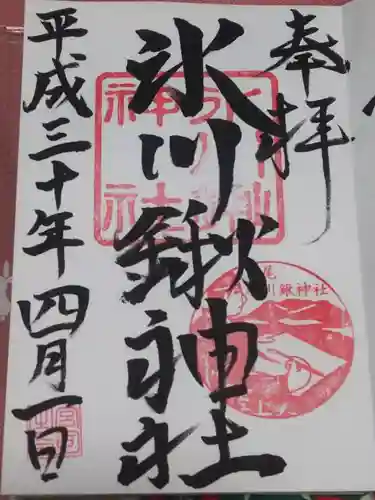 奉拝
氷川鍬神社
平成三十年四月一日
川鍬神社